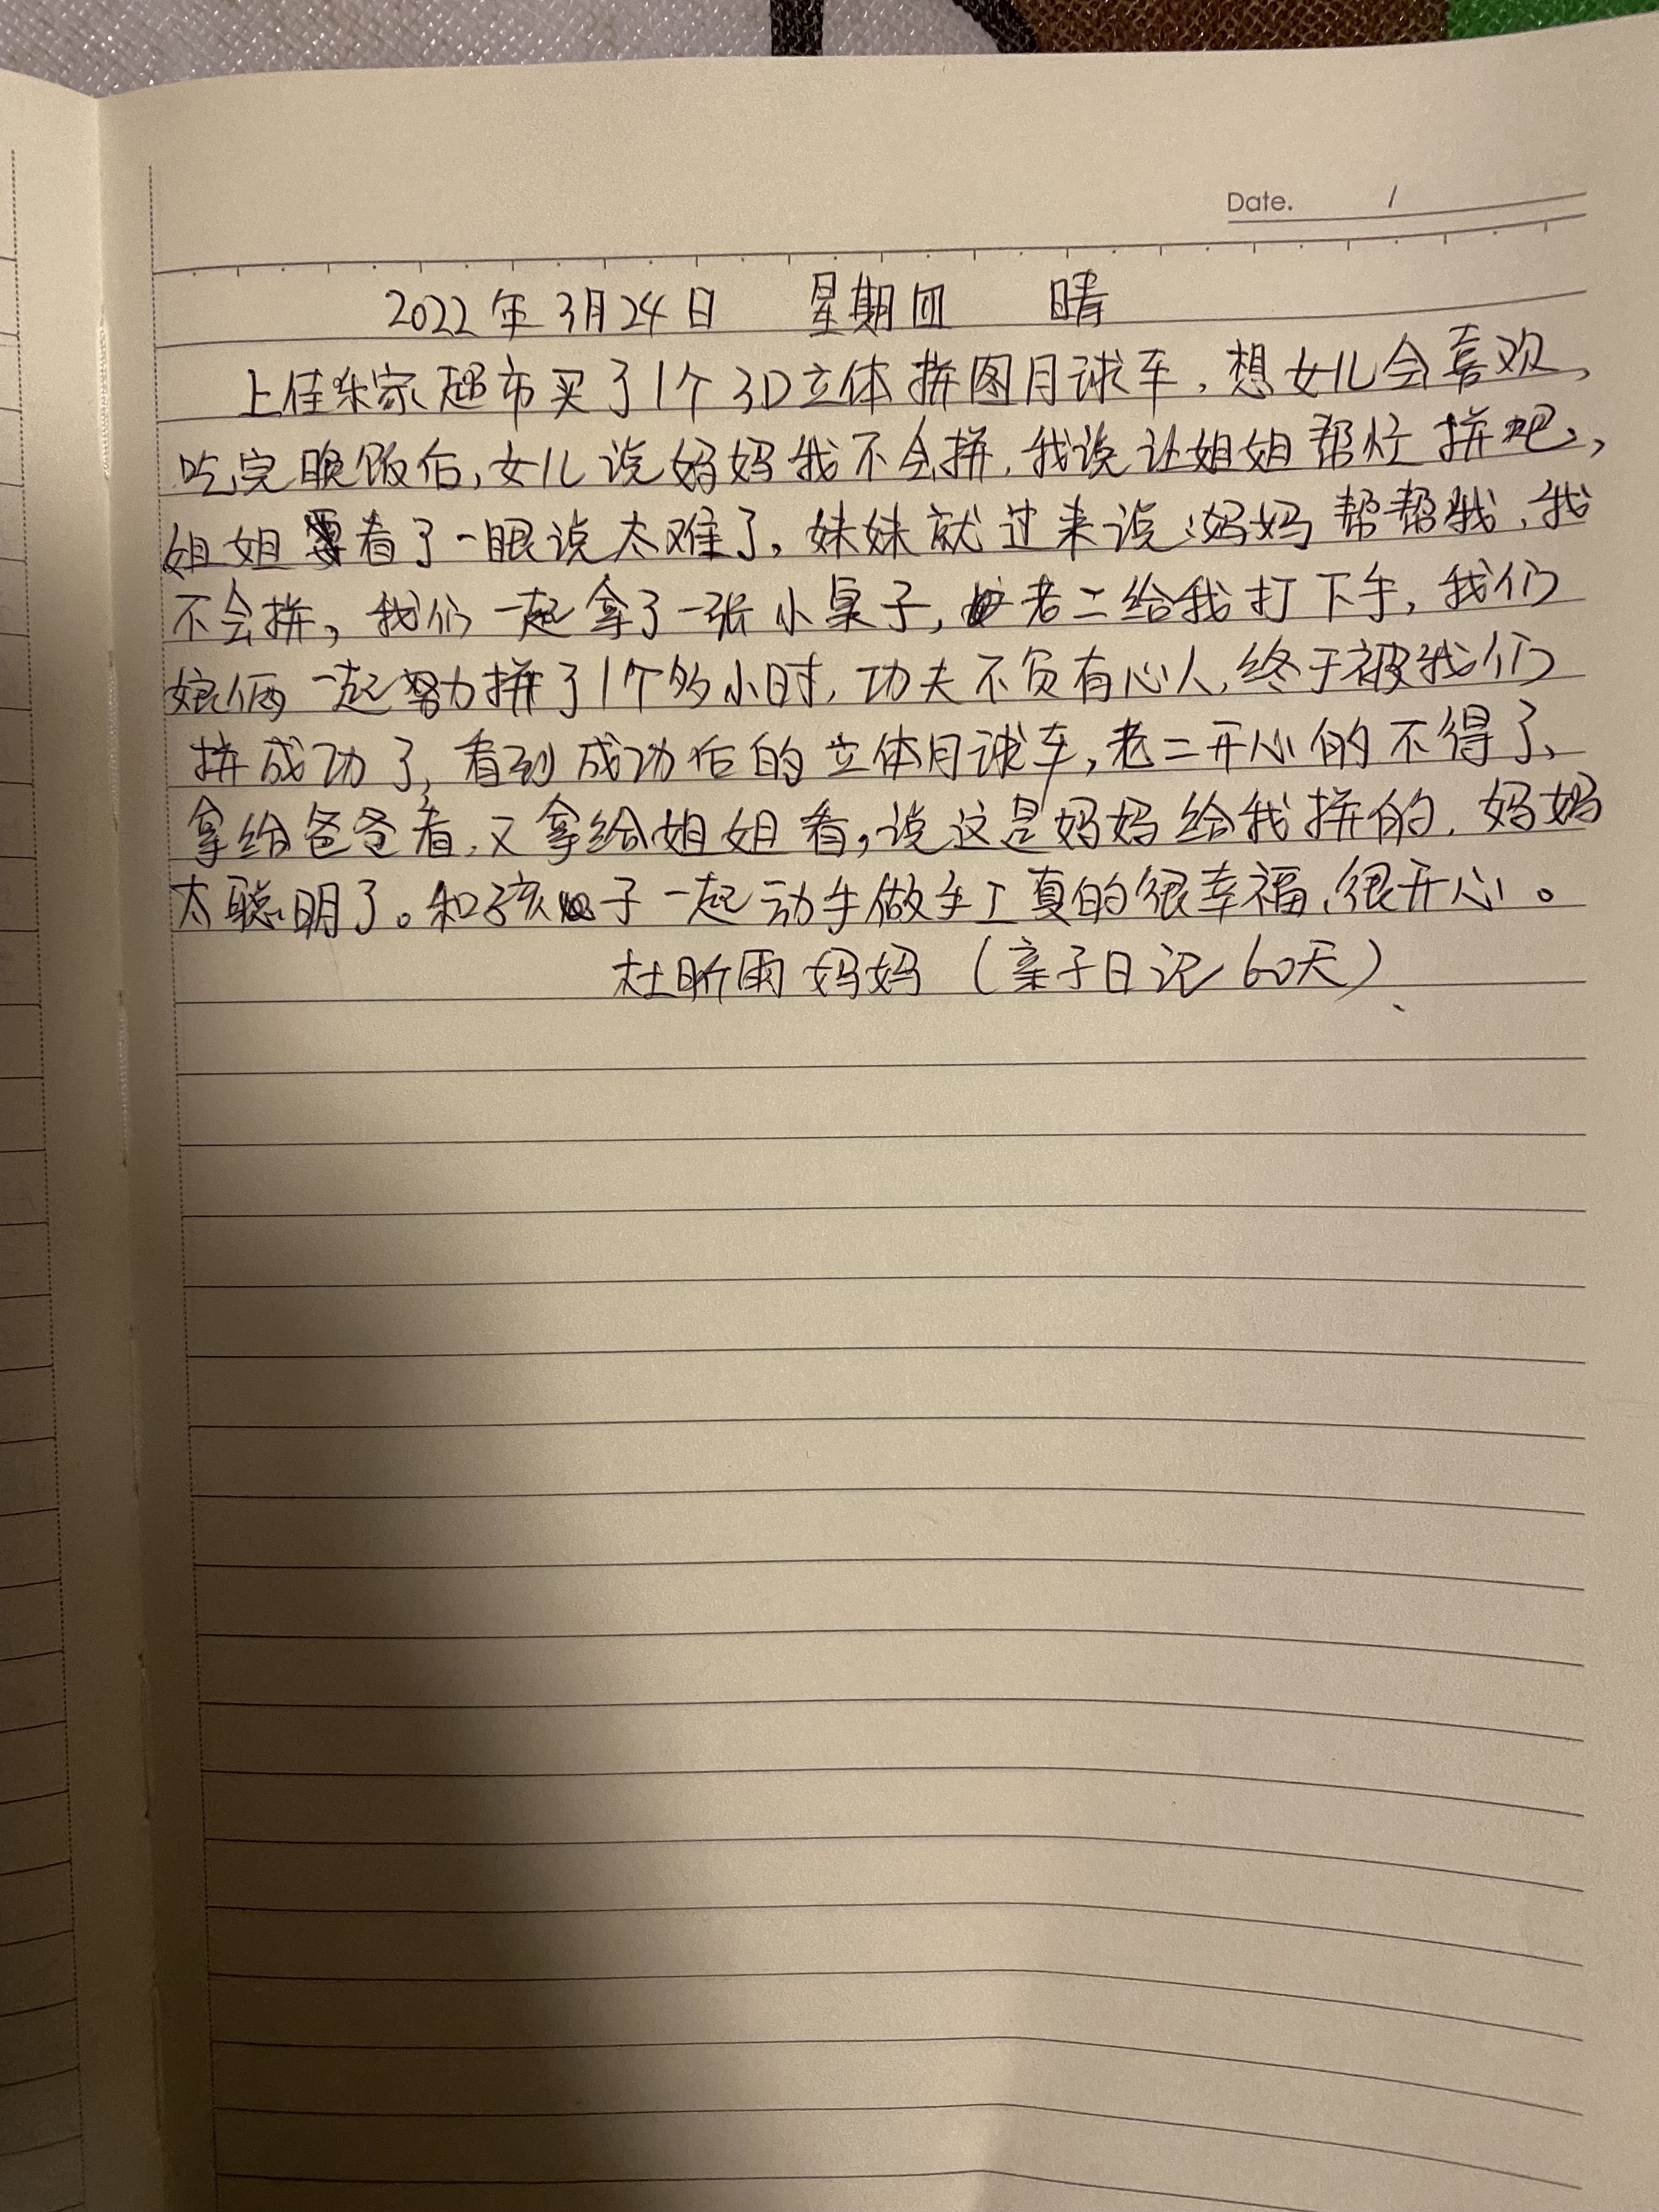 Date. /
2022年3月24日 星期四 晴
上佳乐家超市买了1个3D立体拼图月球车,想女儿会喜欢,
吃完晚饭后,女儿说妈妈我不会拼,我说让姐姐帮忙拼吧,
姐姐看了一眼说太难了,妹妹就过来说:妈妈帮帮我,我
不会拼,我们一起拿了一张小桌子,老二给我打下手,我们
娘俩一起努力拼了1个多小时,功夫不负有心人,终于被我们
拼成功了,看到成功后的立体月球车,老二开心的不得了、
拿给爸爸看,又拿给姐姐看,说这是妈妈给我拼的,妈妈
太聪明了。和孩子一起动手做手工真的很幸福、很开心。
杜昕雨妈妈(亲子日记60天)